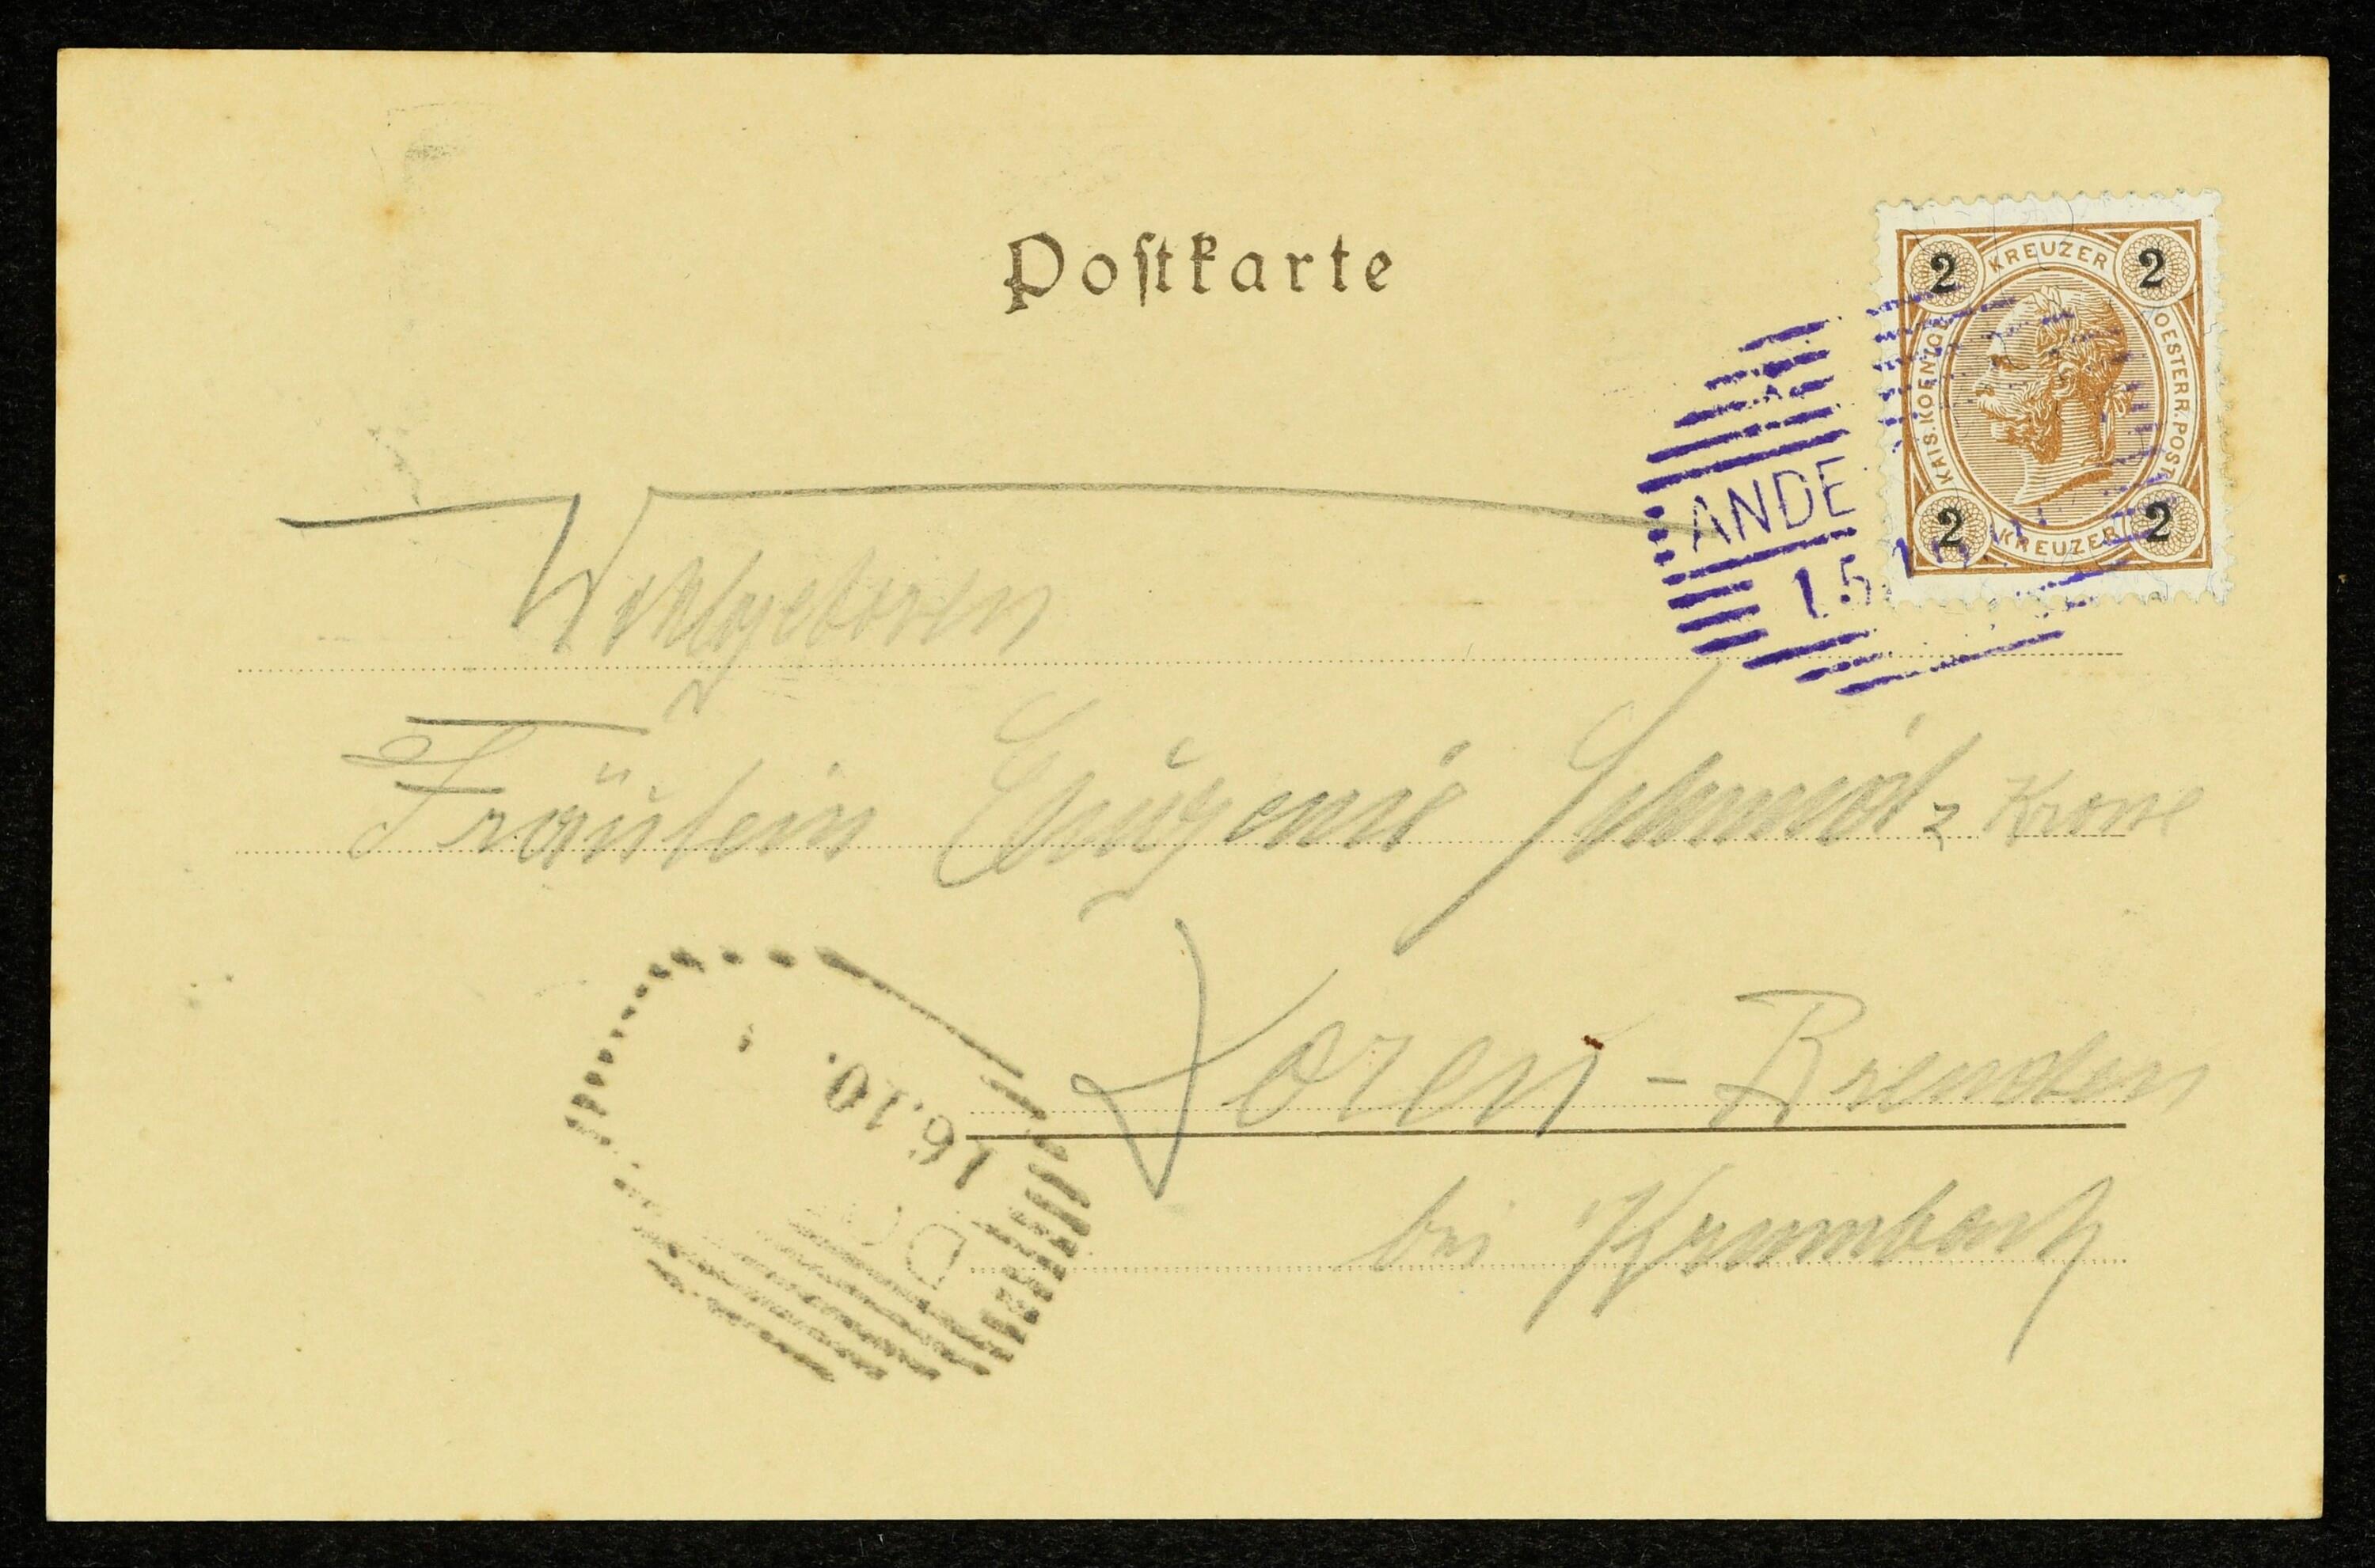 Postkarte
2 KREUZER 2
KAIS. KOENIGL. OESTERR. POST.
2 KREUZER 2
ANDE
15
Wohlgeboren
Fräulein Eugenie Schmid z Krone
Doren - Brenden
bei Krumbach
16.10.
DO